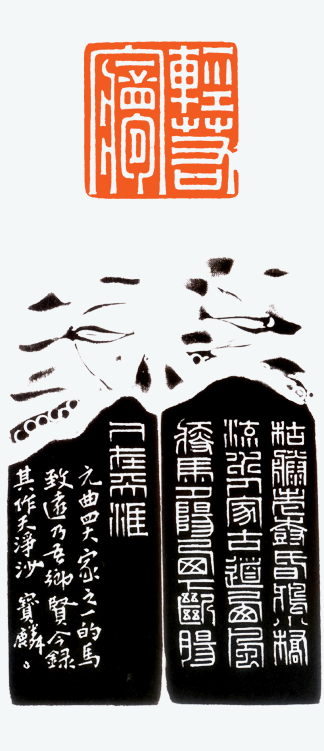 枯藤老樹昏鴉小橋
流水人家古道西風
瘦馬夕陽西下斷腸
人在天涯
元曲四大家之一的馬
致遠乃吾鄉賢今錄
其作天淨沙 寶麟。